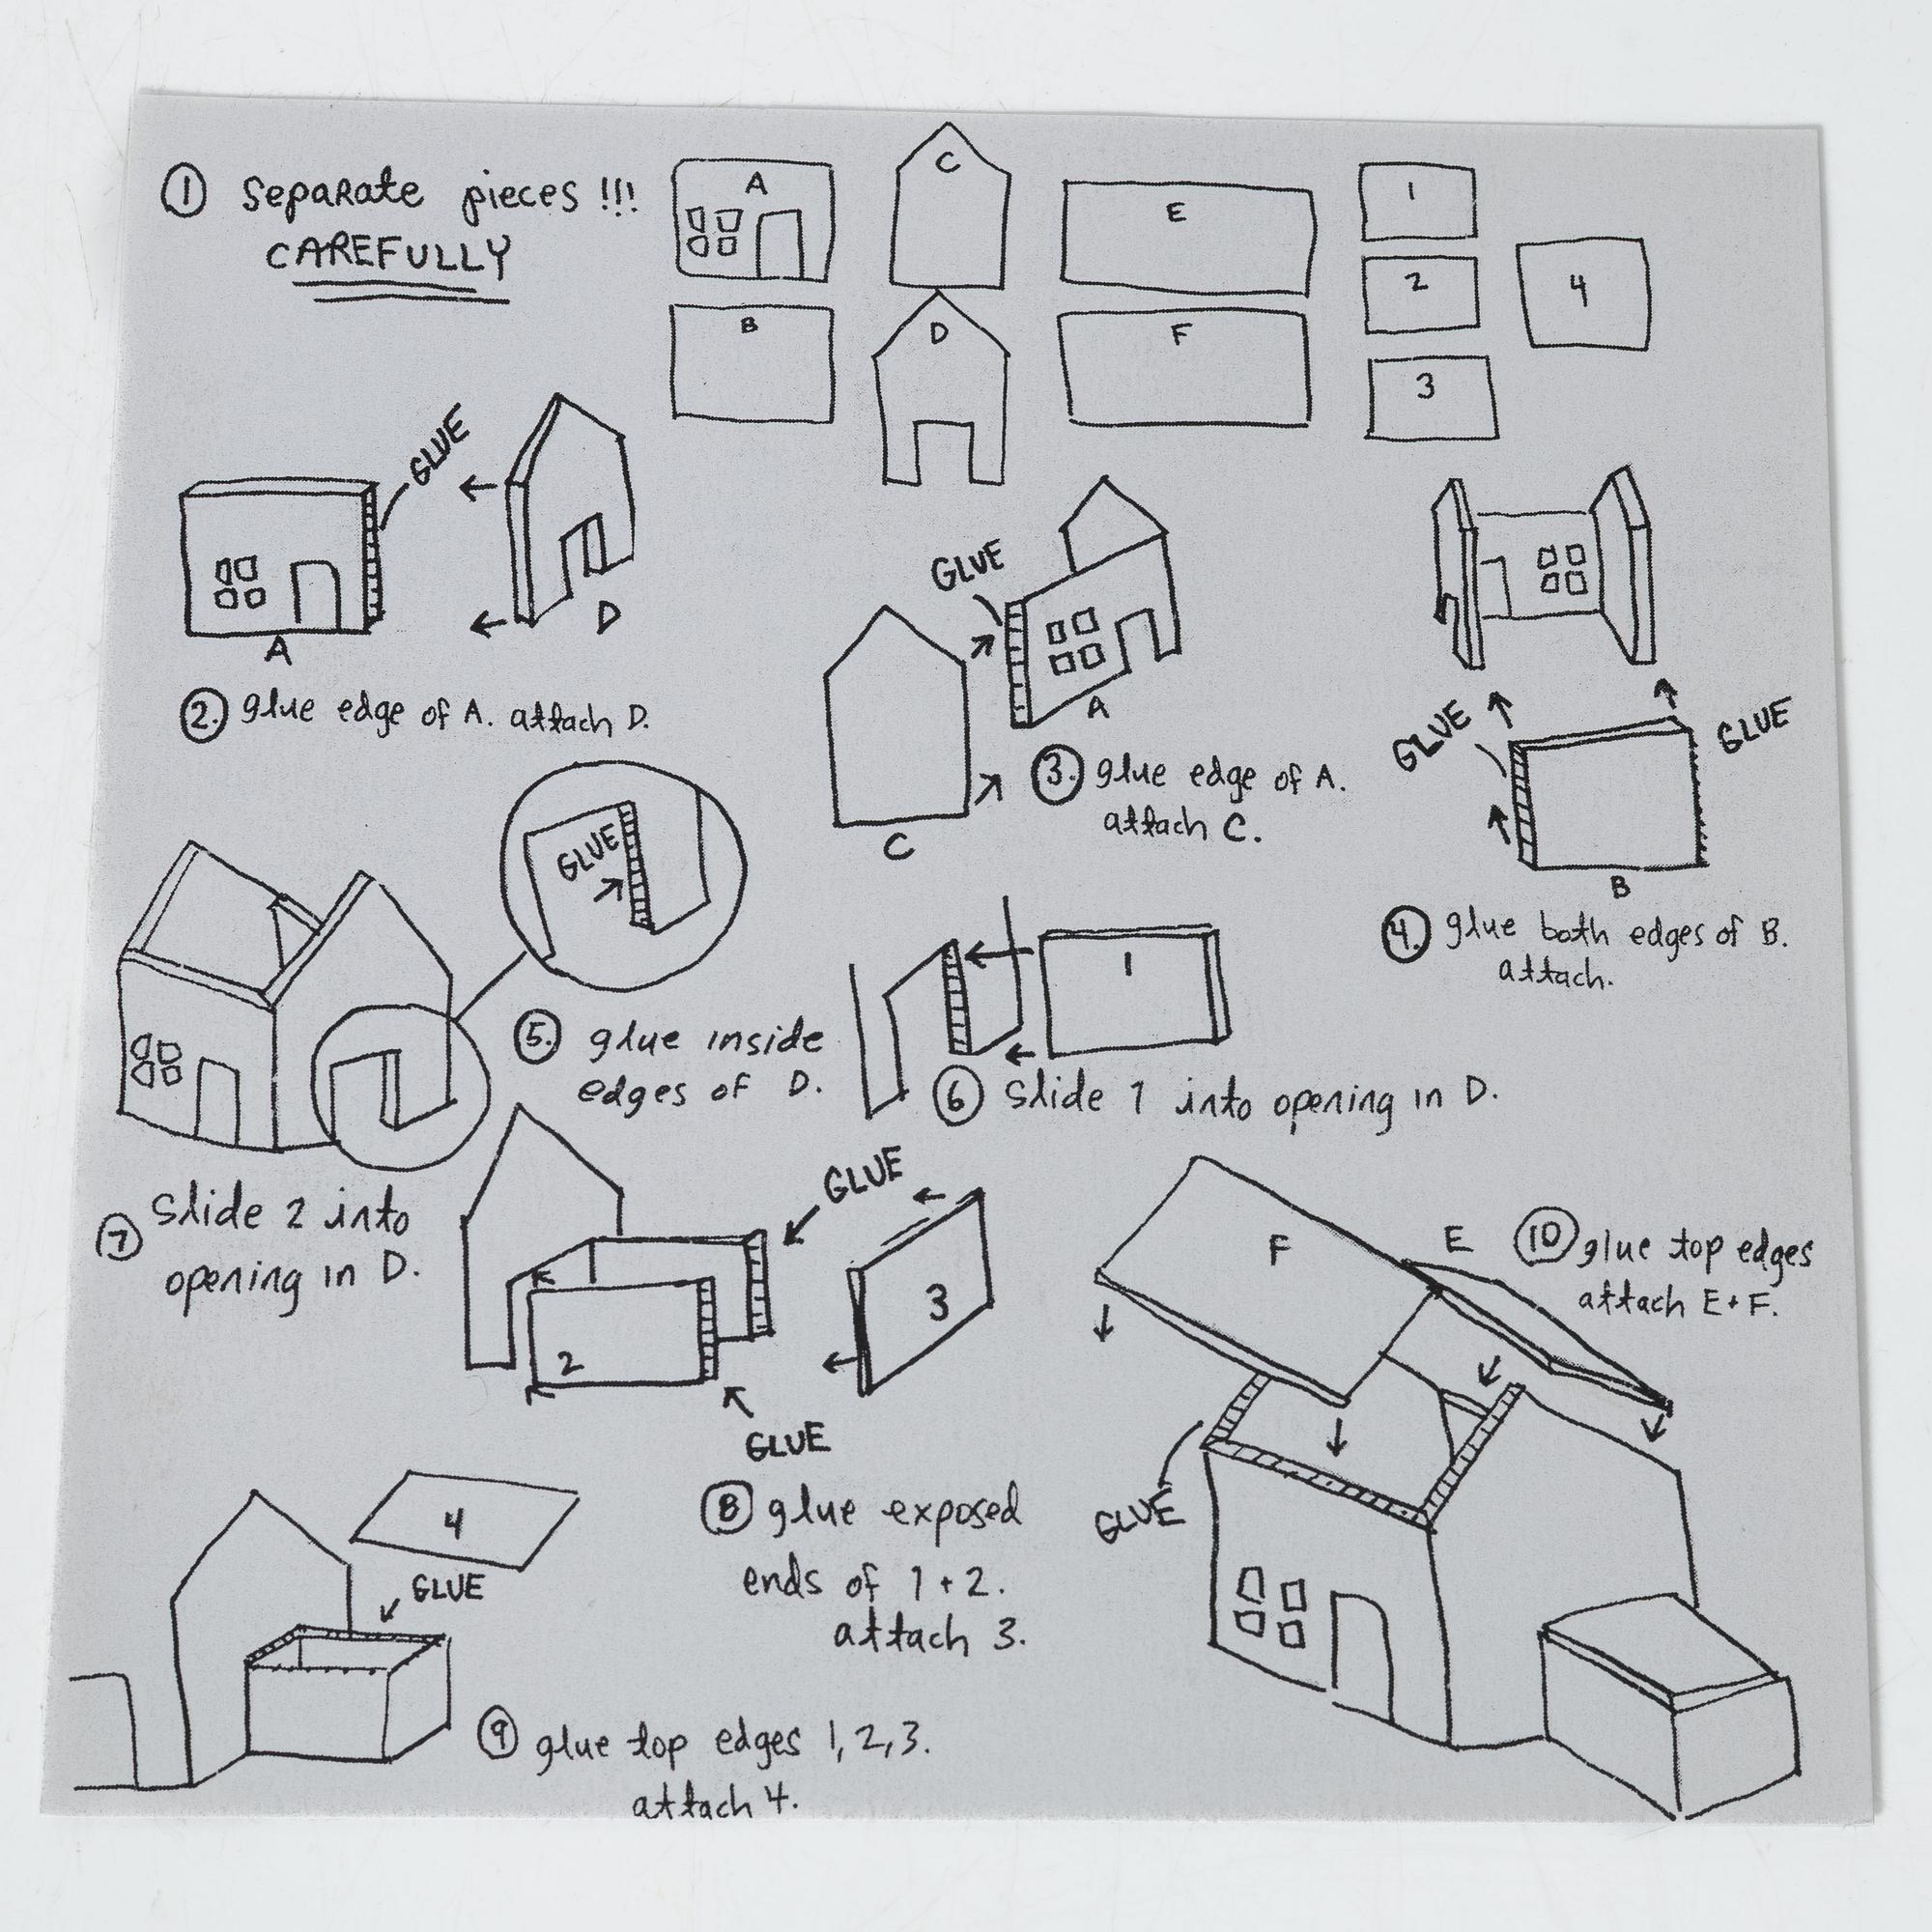 ① Separate pieces !!!
CAREFULLY
A
B
C
D
E
F
1
2
3
4
GLUE
A
D
②. glue edge of A. attach D.
GLUE
A
C
③. glue edge of A.
attach C.
GLUE
GLUE
B
④. glue both edges of B.
attach.
GLUE
⑤. glue inside
edges of D.
1
⑥ Slide 1 into opening in D.
⑦ Slide 2 into
opening in D.
GLUE
1
2
3
GLUE
⑧ glue exposed
ends of 1 + 2.
attach 3.
4
GLUE
⑨ glue top edges 1, 2, 3.
attach 4.
F
E
⑩ glue top edges
attach E + F.
GLUE